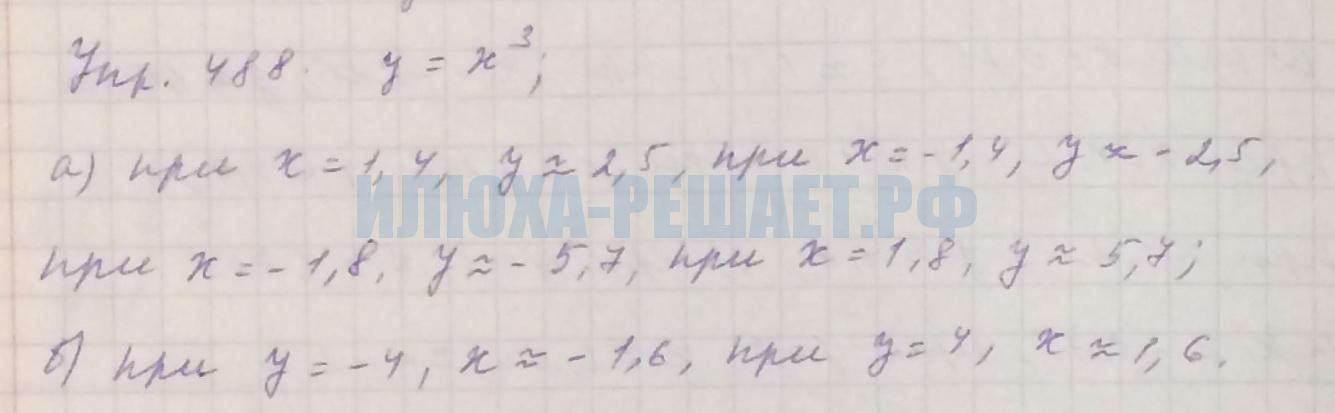 Упр. 488. y = x³;
а) при x = 1,4, y ≈ 2,5, при x = -1,4, y ≈ -2,5,
ИЛЮХА-РЕШАЕТ.РФ
при x = -1,8, y ≈ -5,7, при x = 1,8, y ≈ 5,7;
б) при y = -4, x ≈ -1,6, при y = 4, x ≈ 1,6.